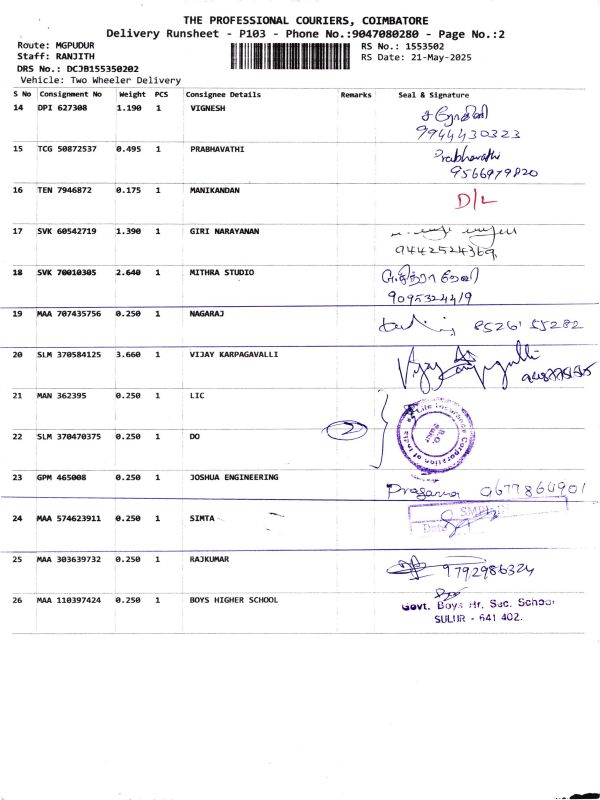 THE PROFESSIONAL COURIERS, COIMBATORE
Delivery Runsheet - P103 - Phone No.:9047080280 - Page No.:2
Route: MGPUDUR RS No.: 1553502
Staff: RANJITH RS Date: 21-May-2025
DRS No.: DCJB155350202
Vehicle: Two Wheeler Delivery
S No Consignment No Weight PCS Consignee Details Remarks Seal & Signature
14 DPI 627308 1.190 1 VIGNESH
9944430323
15 TCG 50872537 0.495 1 PRABHAVATHI Prabhavathi
9566979820
16 TEN 7946872 0.175 1 MANIKANDAN D/L
17 SVK 60542719 1.390 1 GIRI NARAYANAN
9442524369
18 SVK 70010305 2.640 1 MITHRA STUDIO
9095324419
19 MAA 707435756 0.250 1 NAGARAJ 85261 55282
20 SLM 370584125 3.660 1 VIJAY KARPAGAVALLI Vijay
21 MAN 362395 0.250 1 LIC
22 SLM 370470375 0.250 1 DO 2
Life Insurance Corporation of India
23 GPM 465008 0.250 1 JOSHUA ENGINEERING 9677864901
24 MAA 574623911 0.250 1 SIMTA
Date
25 MAA 303639732 0.250 1 RAJKUMAR 9792986324
26 MAA 110397424 0.250 1 BOYS HIGHER SCHOOL
Govt. Boys Hr. Sec. School
SULUR - 641 402.